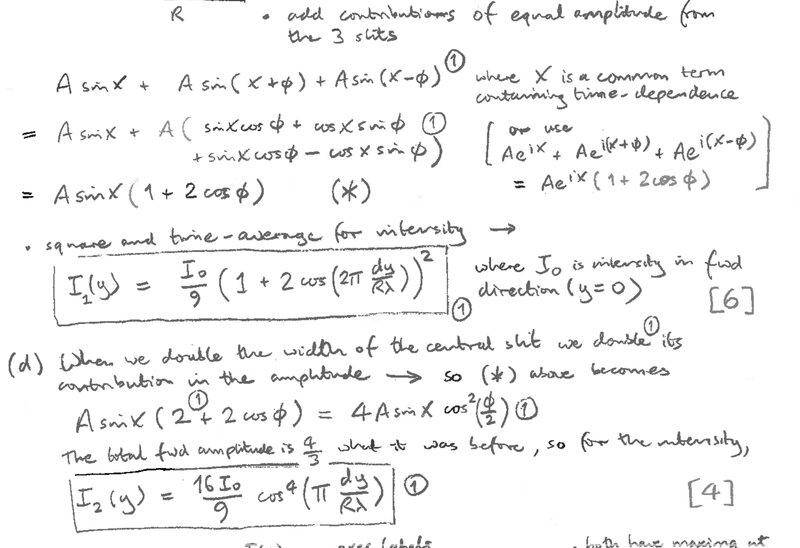 R • add contributions of equal amplitude from
the 3 slits
A sin X + A sin(X+ϕ) + A sin(X-ϕ) ① where X is a common term
containing time-dependence
= A sin X + A( sin X cos ϕ + cos X sin ϕ ①
+ sin X cos ϕ - cos X sin ϕ)
[ or use
Ae^{iX} + Ae^{i(X+ϕ)} + Ae^{i(X-ϕ)}
= Ae^{iX} (1 + 2 cos ϕ) ]
= A sin X (1 + 2 cos ϕ) (*)
• square and time-average for intensity →
I₁(y) = I₀/9 (1 + 2 cos(2π dy/Rλ))² ① where I₀ is intensity in fwd
direction (y=0) [6]
(d) When we double the width of the central slit we double ① its
contribution in the amplitude → so (*) above becomes
A sin X (2 ① + 2 cos ϕ) = 4A sin X cos²(ϕ/2) ①
The total fwd amplitude is 4/3 what it was before, so for the intensity,
I₂(y) = 16I₀/9 cos⁴(π dy/Rλ) ① [4]
axes labels
both have maxima at